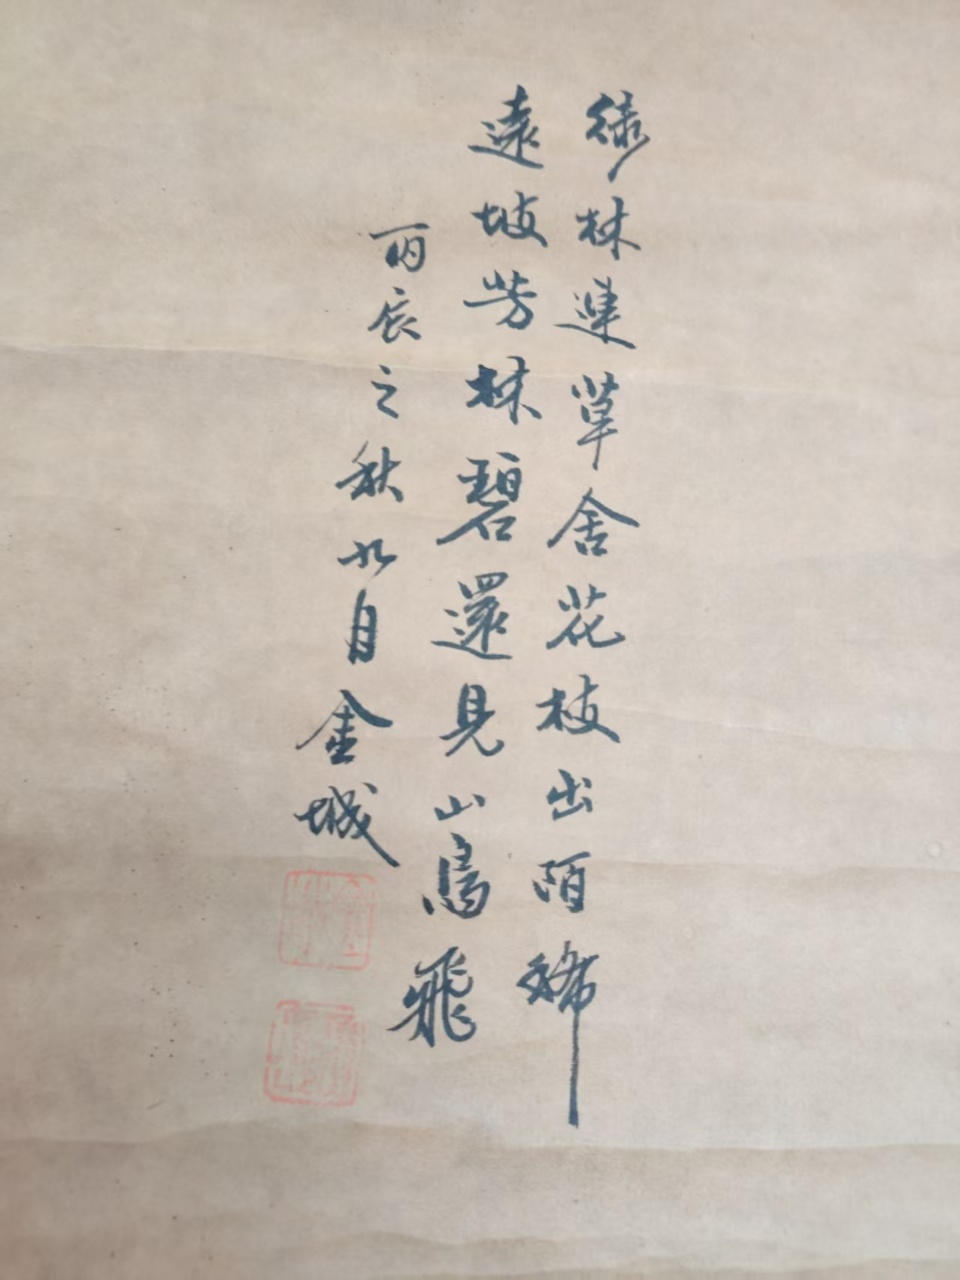 綠林連草舍花枝出陌稀
遠坡芳林碧還見山鳥飛
丙辰之秋九月金城